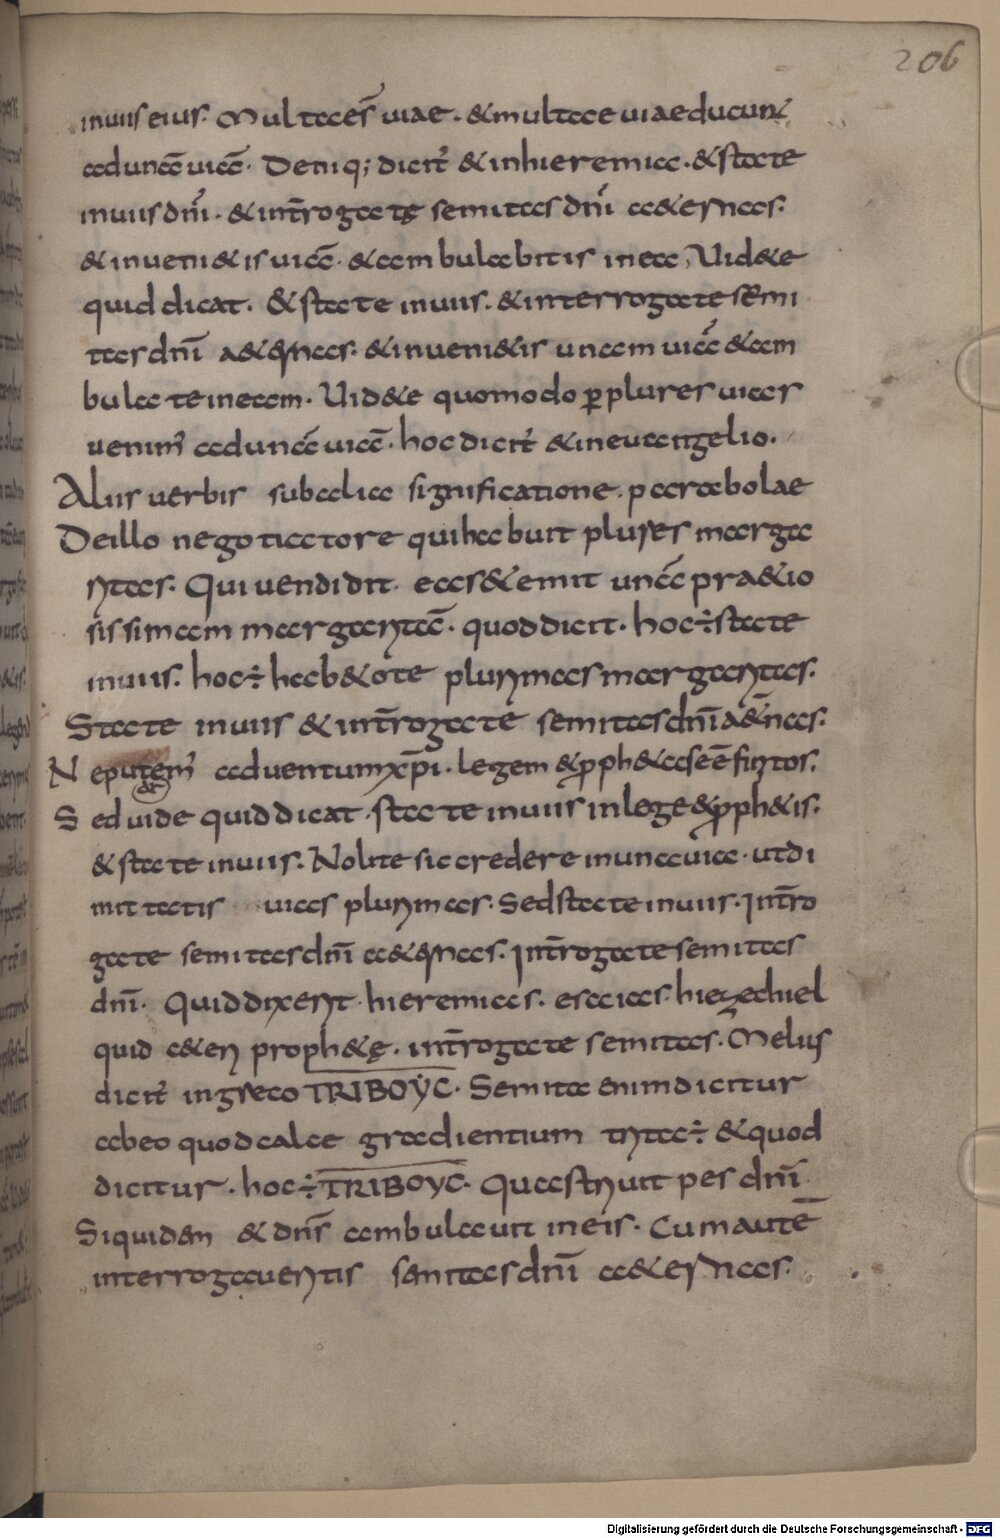 206
inuiis eius. Multae s̄ uiae. & multae uiae ducunt
ad unā uiā. Deniq; dicit̄ & inhieremia. & state
inuiis dn̄i. & int̄rogatę semitas dn̄i aet&ernas.
& inueni&is uiā. & ambulabitis inea, Uid&e
quid dicat. & state inuiis. & interrogate semi
tas dn̄i a&ernas. & inueni&is unam uiā & am
bulate ineam. Uid&e quomodo ꝑ plures uias
uenim̄ ad unā uiā. hoc dicit̄ & ineuangelio.
Aliis uerbis sub alia significatione. parabolae
De illo negotiatore quihabuit plures marga
ritas. Qui uendidit. eas & emit unā pr&io
sissimam margaritā. quod dicit. hoc ÷ state
inuiis. hoc ÷ hab&ote plurimas margaritas.
State inuiis & int̄rogate semitas dn̄i a&ernas.
Ne putem̄ ad uentum xp̄i. legem & ꝓph&as eē finitos.
Sed uide quid dicat. state inuiis in lege & ꝓph&is.
& state inuiis. Nolite sic credere inuna uia. ut di
mittatis uias plurimas. Sed state inuiis. Int̄ro
gate semitas dn̄i a&ernas. Int̄rogate semitas
dn̄i. Quid dixerit. hieremias. esaias. hiezechiel
quid c&eri proph&ę. int̄rogate semitas. Melius
dicit̄ ingreco TRIBOYC. Semita enim dicitur
ab eo quod calce gradientium trita ÷ & quod
dicitur. hoc ÷ TRIBOYC. Quas triuit pes dn̄i.
Siquidem & dn̄s ambulauit in eis. Cum autē
interrogaueritis semitas dn̄i a&ernas.
Digitalisierung gefördert durch die Deutsche Forschungsgemeinschaft - DFG